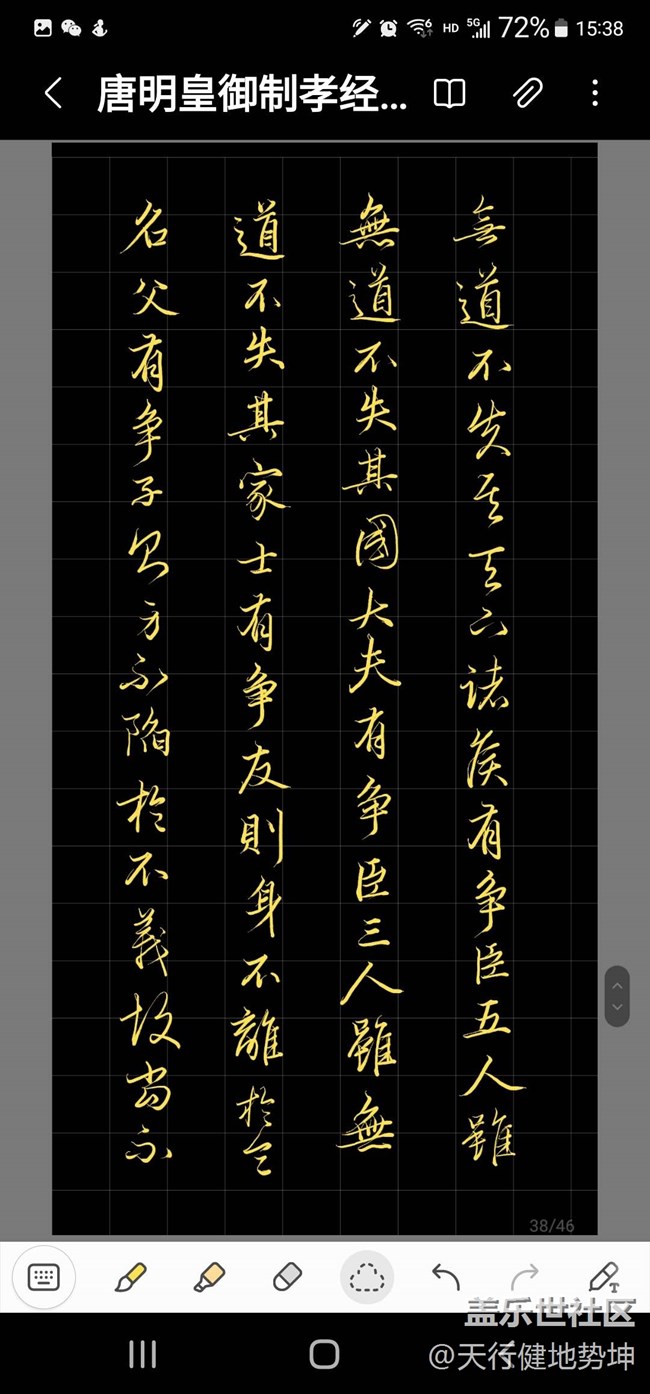 15:38
72%
HD 5G
唐明皇御制孝经...
無道不失其天下諸侯有争臣五人雖
無道不失其國大夫有争臣三人雖無
道不失其家士有争友則身不離於令
名父有争子則身不陷於不義故當不
38/46
盖乐世社区
@天行健地势坤